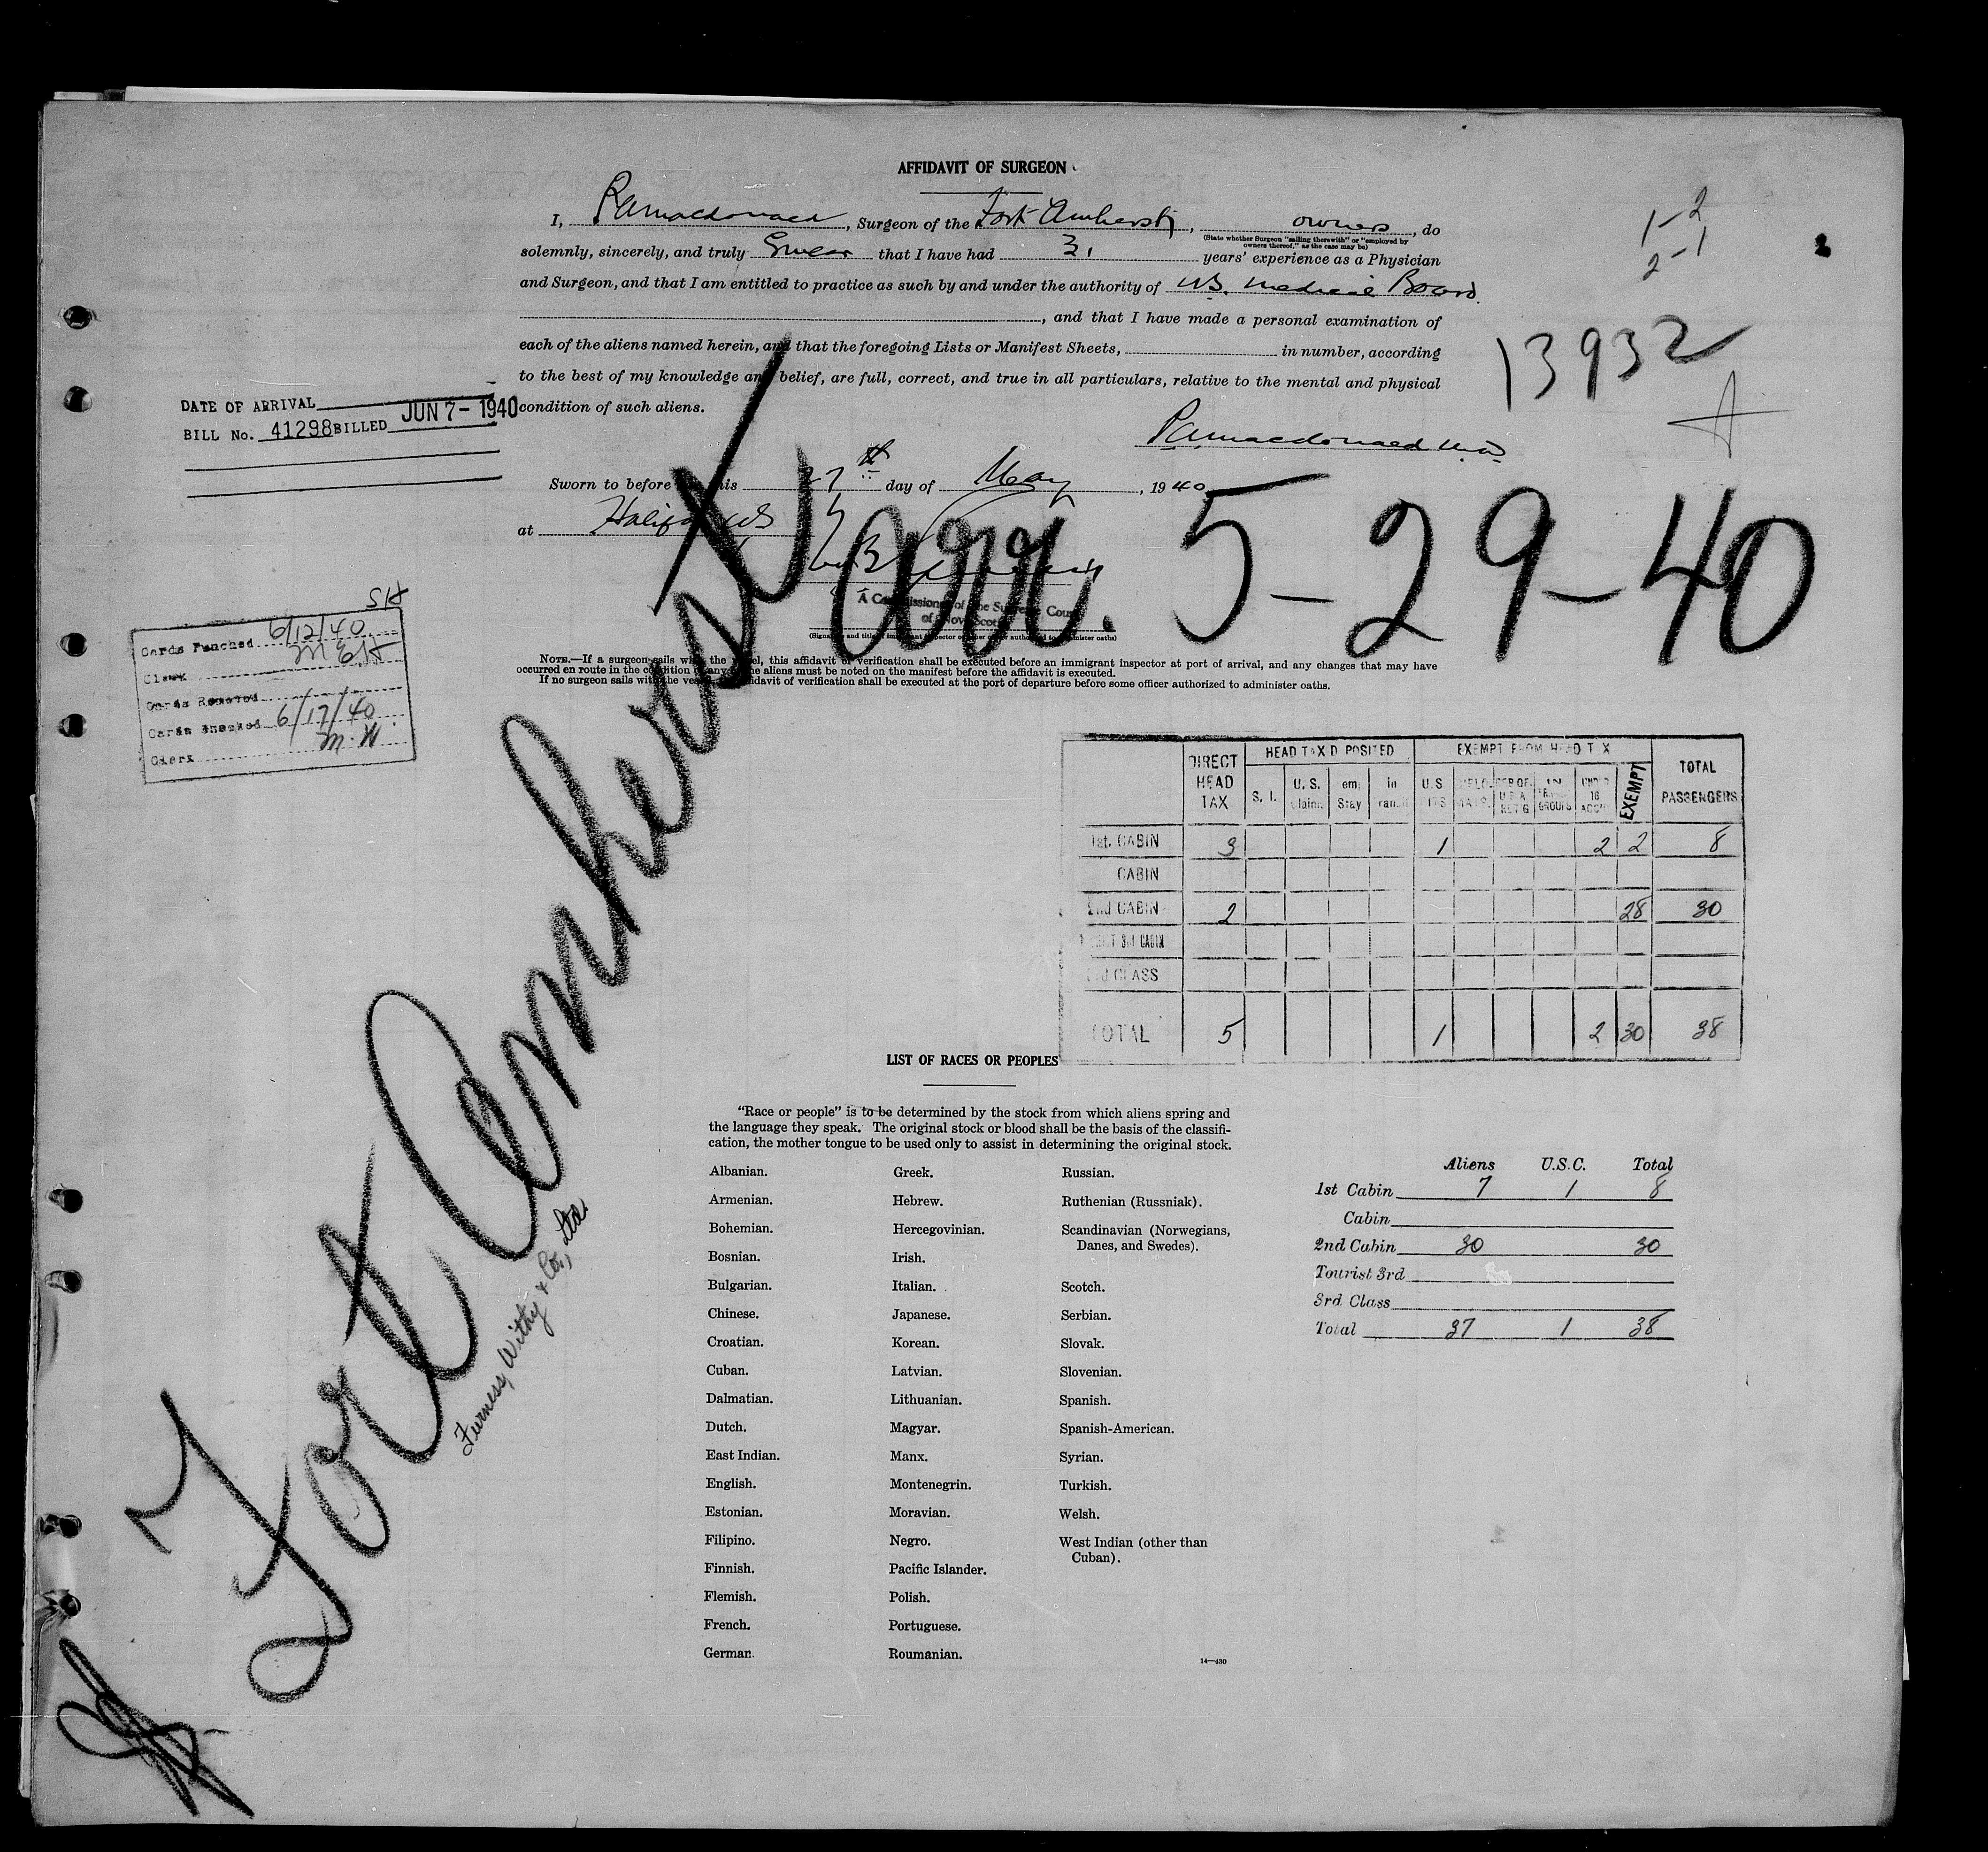 AFFIDAVIT OF SURGEON
I, , Surgeon of the Fort Amherst, owners, do
(State whether Surgeon "sailing therewith" or "employed by
owners thereof," as the case may be)
solemnly, sincerely, and truly Swear that I have had 31 years' experience as a Physician
and Surgeon, and that I am entitled to practice as such by and under the authority of N.S. Medical Board.
, and that I have made a personal examination of
each of the aliens named herein, and that the foregoing Lists or Manifest Sheets, in number, according
to the best of my knowledge and belief, are full, correct, and true in all particulars, relative to the mental and physical
condition of such aliens.
1-2
2-1
13932
DATE OF ARRIVAL
BILL No. 41298 BILLED JUN 7- 1940
Macdonald M.D.
Sworn to before this 27th day of May, 1940
at Halifax NS
A Commissioner of the Supreme Court
of Nova Scotia
(Signature and title of immigrant inspector or other officer authorized to administer oaths)
arr. 5-29-40
NOTE.—If a surgeon sails with the vessel, this affidavit of verification shall be executed before an immigrant inspector at port of arrival, and any changes that may have
occurred en route in the condition of any of the aliens must be noted on the manifest before the affidavit is executed.
If no surgeon sails with the vessel, affidavit of verification shall be executed at the port of departure before some officer authorized to administer oaths.
SH
Cards Punched 6/12/40
Clerk
Cards Removed
Cards Checked 6/17/40
Clerk M.W.
Fort Amherst
Furness, Withy & Co., Ltd.
DIRECT HEAD TAX HEAD TAX DEPOSITED EXEMPT FROM HEAD TAX TOTAL PASSENGERS
S. I. U. S. Claim Tem. Stay in Transit U.S. EXEMPT
1st. CABIN 3 1 2 2 8
CABIN
2nd CABIN 2 28 30
TOURIST 3rd CABIN
3rd CLASS
TOTAL 5 1 2 30 38
LIST OF RACES OR PEOPLES
"Race or people" is to be determined by the stock from which aliens spring and
the language they speak. The original stock or blood shall be the basis of the classifi-
cation, the mother tongue to be used only to assist in determining the original stock.
Albanian.
Armenian.
Bohemian.
Bosnian.
Bulgarian.
Chinese.
Croatian.
Cuban.
Dalmatian.
Dutch.
East Indian.
English.
Estonian.
Filipino.
Finnish.
Flemish.
French.
German.
Greek.
Hebrew.
Hercegovinian.
Irish.
Italian.
Japanese.
Korean.
Latvian.
Lithuanian.
Magyar.
Manx.
Montenegrin.
Moravian.
Negro.
Pacific Islander.
Polish.
Portuguese.
Roumanian.
Russian.
Ruthenian (Russniak).
Scandinavian (Norwegians,
Danes, and Swedes).
Scotch.
Serbian.
Slovak.
Slovenian.
Spanish.
Spanish-American.
Syrian.
Turkish.
Welsh.
West Indian (other than
Cuban).
14—430
Aliens U.S.C. Total
1st Cabin 7 1 8
Cabin
2nd Cabin 30 30
Tourist 3rd
3rd Class
Total 37 1 38